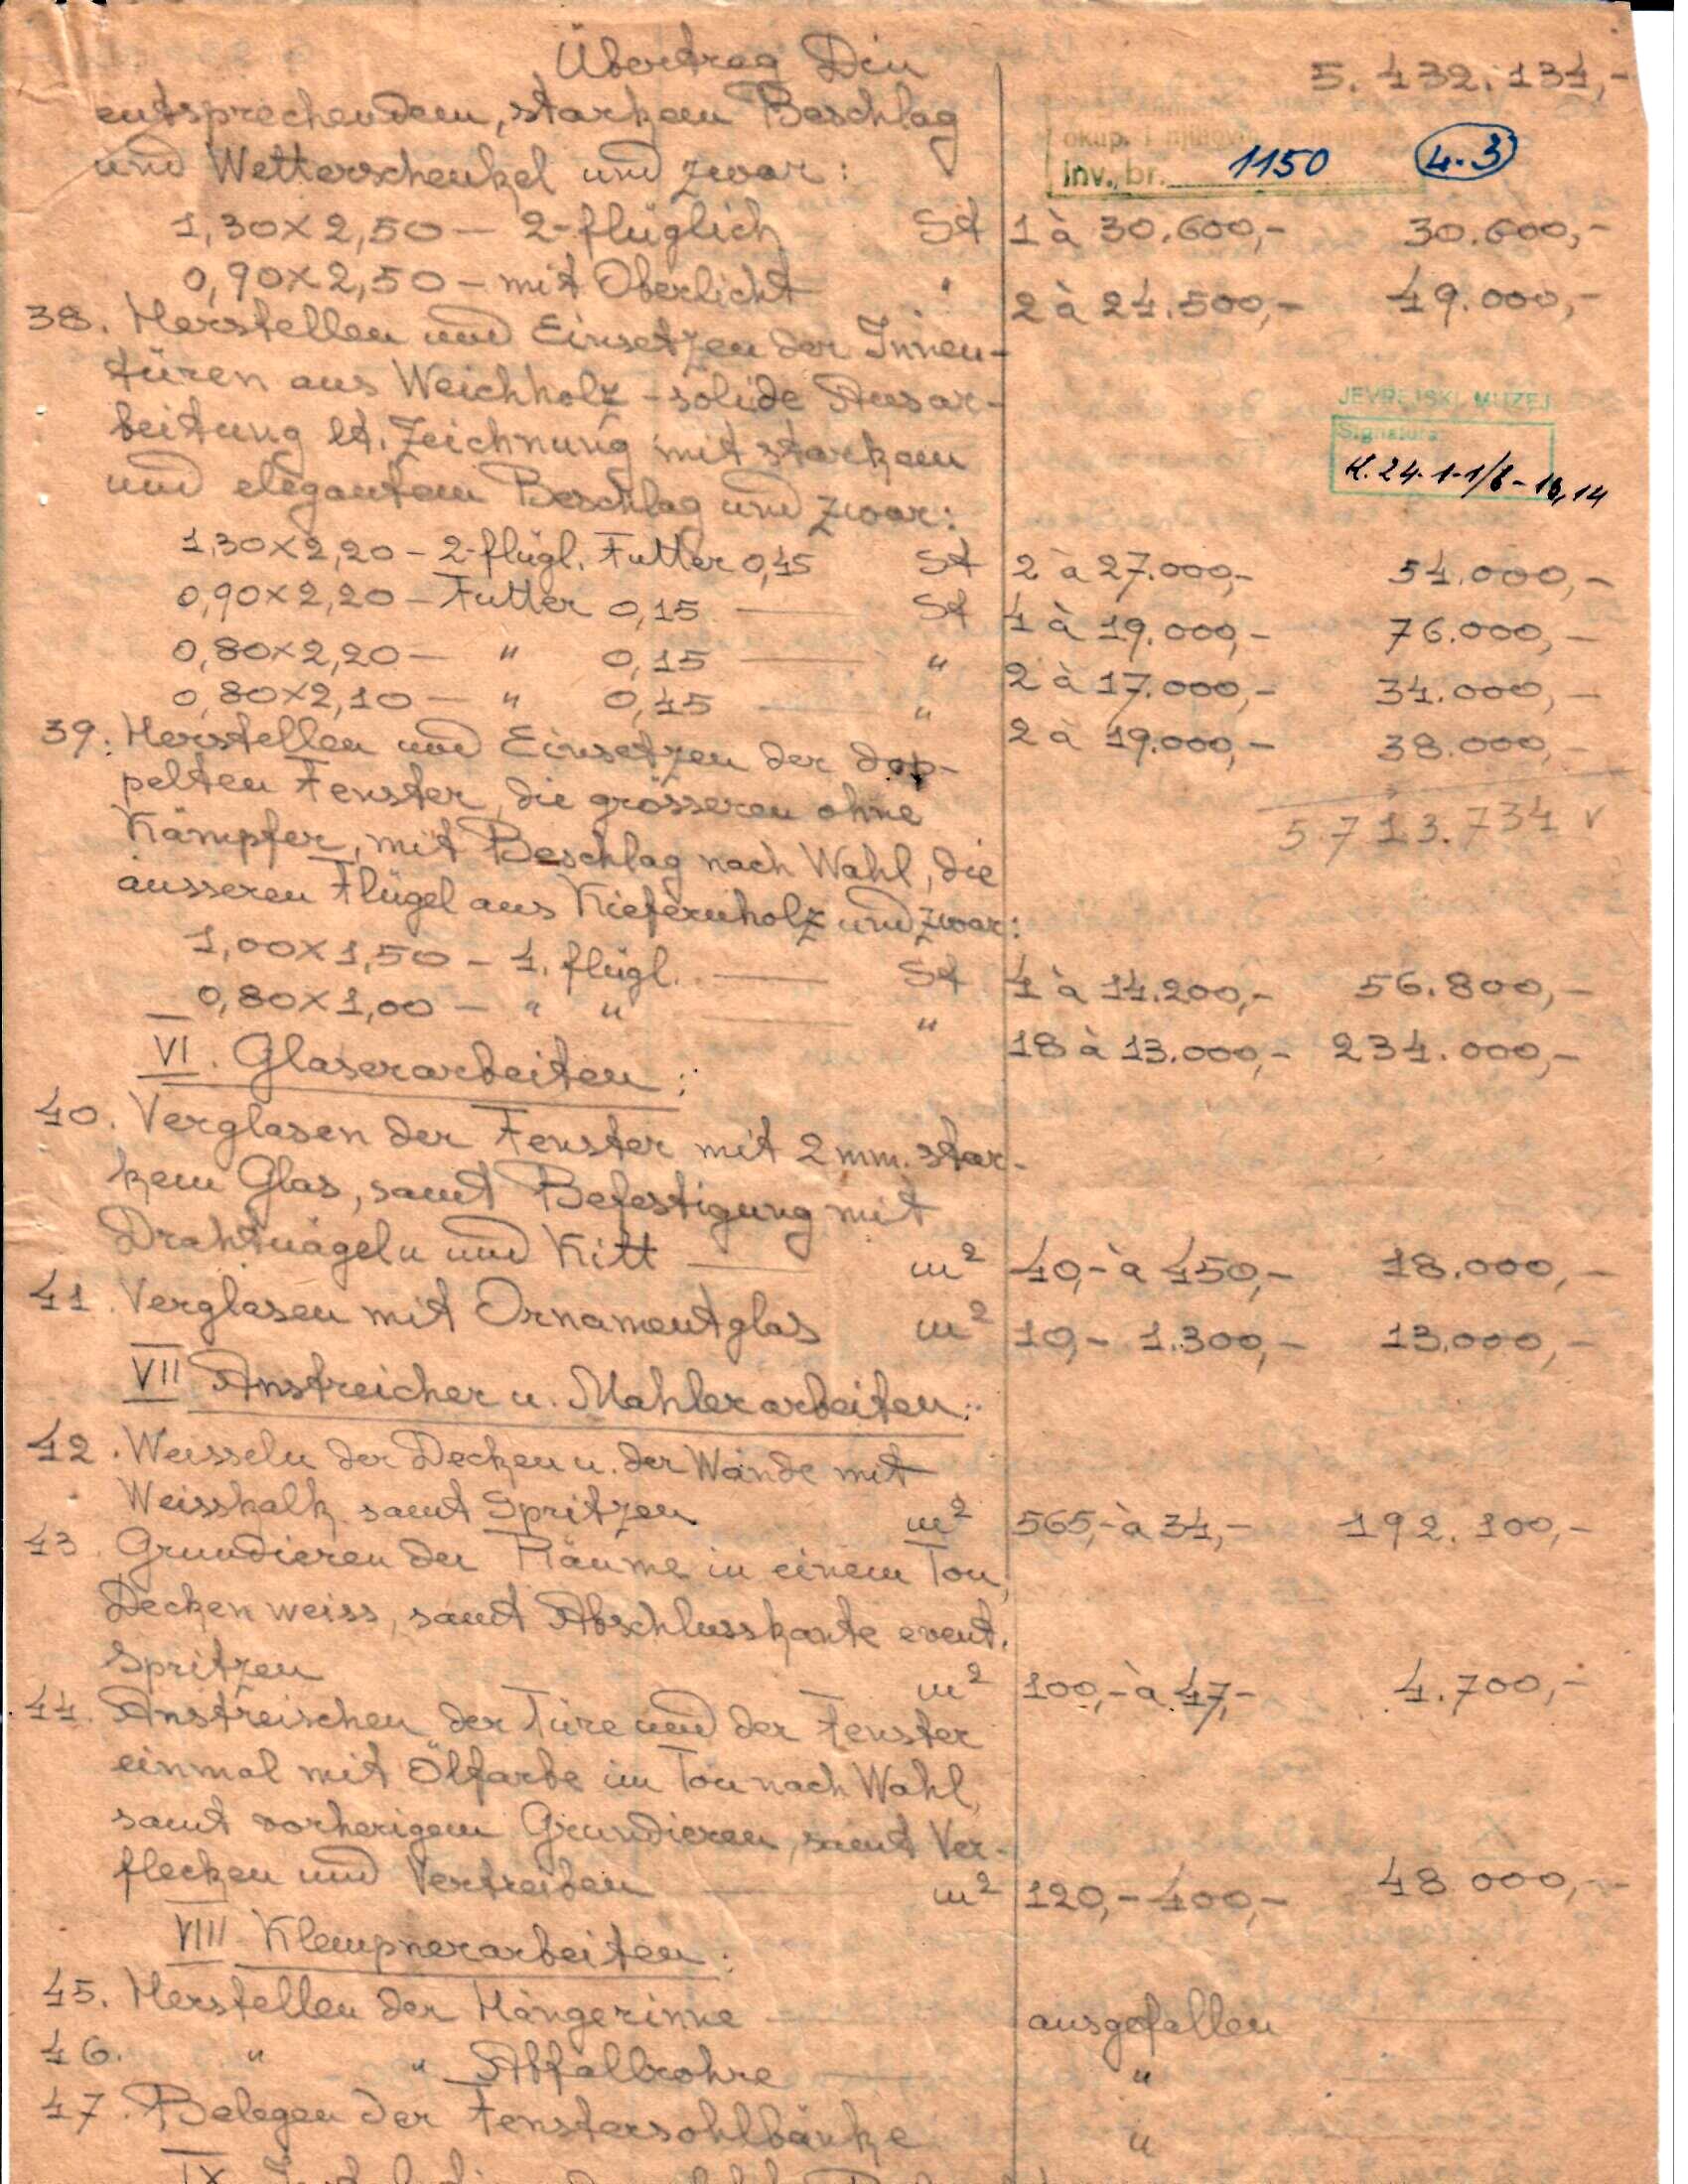 Übertrag Din 5.432.134,-
entsprechendem, starkem Beschlag
und Wetterschenkel und zwar:
okup. i njihovih
Inv. br. 1150 4-3
1,30×2,50 — 2-flüglich St 1 à 30.600,- 30.600,-
0,90×2,50 — mit Oberlicht " 2 à 24.500,- 49.000,-
38. Herstellen und Einsetzen der Innen-
türen aus Weichholz - solide Ausar-
beitung lt. Zeichnung mit starkem
und elegantem Beschlag und zwar:
JEVREJSKI MUZEJ
Signatura
K.24-1-1/8-13,14
1,30×2,20 — 2-flügl. Futter 0,45 St 2 à 27.000,- 54.000,-
0,90×2,20 — Futter 0,15 — St 4 à 19.000,- 76.000,-
0,80×2,20 — " 0,15 — " 2 à 17.000,- 34.000,-
0,80×2,10 — " 0,45 — " 2 à 19.000,- 38.000,-
5.713.734 v
39. Herstellen und Einsetzen der dop-
pelten Fenster, die grösseren ohne
Kämpfer, mit Beschlag nach Wahl, die
äusseren Flügel aus Kiefernholz und zwar:
1,00×1,50 — 1. flügl. — St 4 à 14.200,- 56.800,-
0,80×1,00 — " " — " 18 à 13.000,- 234.000,-
VI. Glaserarbeiten:
40. Verglasen der Fenster mit 2 mm. star-
kem Glas, samt Befestigung mit
Drahtnägeln und Kitt — m² 40,- à 450,- 18.000,-
41. Verglasen mit Ornamentglas m² 10,- 1.300,- 13.000,-
VII Anstreicher u. Mahlerarbeiten:
42. Weisseln der Decken u. der Wände mit
Weisskalk samt Spritzen m² 565,- à 34,- 192.100,-
43. Grundieren der Räume in einem Ton,
Decken weiss, samt Abschlusskante event.
Spritzen — m² 100,- à 47,- 4.700,-
44. Anstreischen der Türe und der Fenster
einmal mit Ölfarbe im Ton nach Wahl,
samt vorherigem Grundieren, samt Ver-
flecken und Vertreiben — m² 120,- 400,- 48000,-
VIII Klempnerarbeiten:
45. Herstellen der Hängerinne — ausgefallen —
46. " " Abfallrohre — " —
47. Belegen der Fenstersohlbänke "
IX